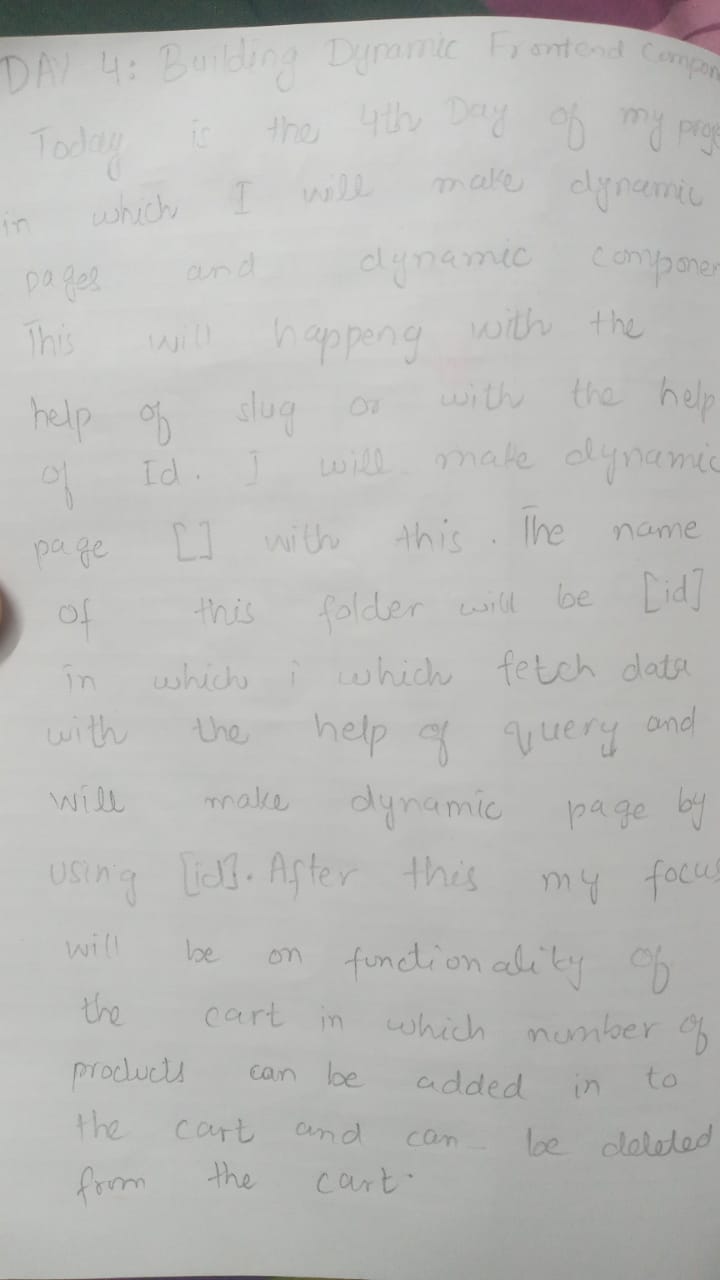 DAY 4: Building Dynamic Frontend Compon
Today is the 4th Day of my proje
in which I will make dynamic
pages and dynamic componen
This will happeng with the
help of slug or with the help
of Id. I will make dynamic
page [] with this. The name
of this folder will be [id]
in which i which fetch data
with the help of query and
will make dynamic page by
using [id]. After this my focus
will be on functionality of
the cart in which number of
products can be added in to
the cart and can be deleted
from the cart.